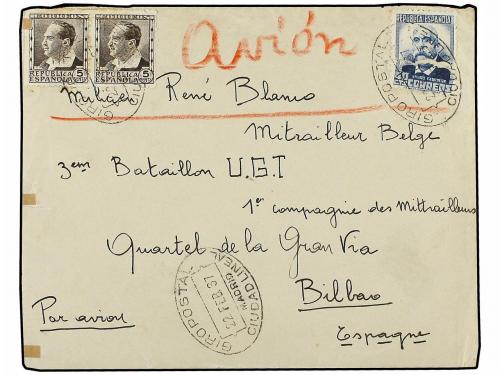 Avión
REPUBLICA ESPAÑOLA
5
REPUBLICA ESPAÑOLA
5
REPUBLICA ESPAÑOLA
GIRO POSTAL
René Blanco
Mitrailleur Belge
3em Bataillon U.G.T
1er compagnie des Mittrailleurs
Quartel de la Gran Via
Bilbao
Espagne
Par avion
GIRO POSTAL
22 FEB. 37
MADRID
CIUDAD LINEAL